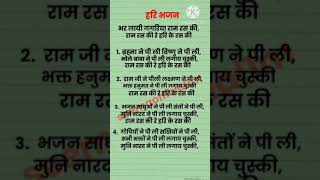 हरि भजन
भर लायी गगरिया राम रस की,
राम रस की रे हरि के रस की
1. ब्रह्मा ने पी ली विष्णु ने पी ली,
भोले बाबा ने पी ली लगाय चुस्की,
राम रस की रे हरि के रस की
2. राम जी ने पीली लक्ष्मण ने पी ली,
भक्त हनुमत ने पी ली लगाय चुस्की
राम रस की रे हरि के रस की
3. भजन साधुओं ने पी ली संतों ने पी ली,
मुनि नारद ने पी ली लगाय चुस्की,
राम रस की रे हरि के रस की
4. गोपियों ने पी ली सखियों ने पी ली,
सभी भक्तों ने पी ली लगाय चुस्की,
राम रस की रे हरि के रस की